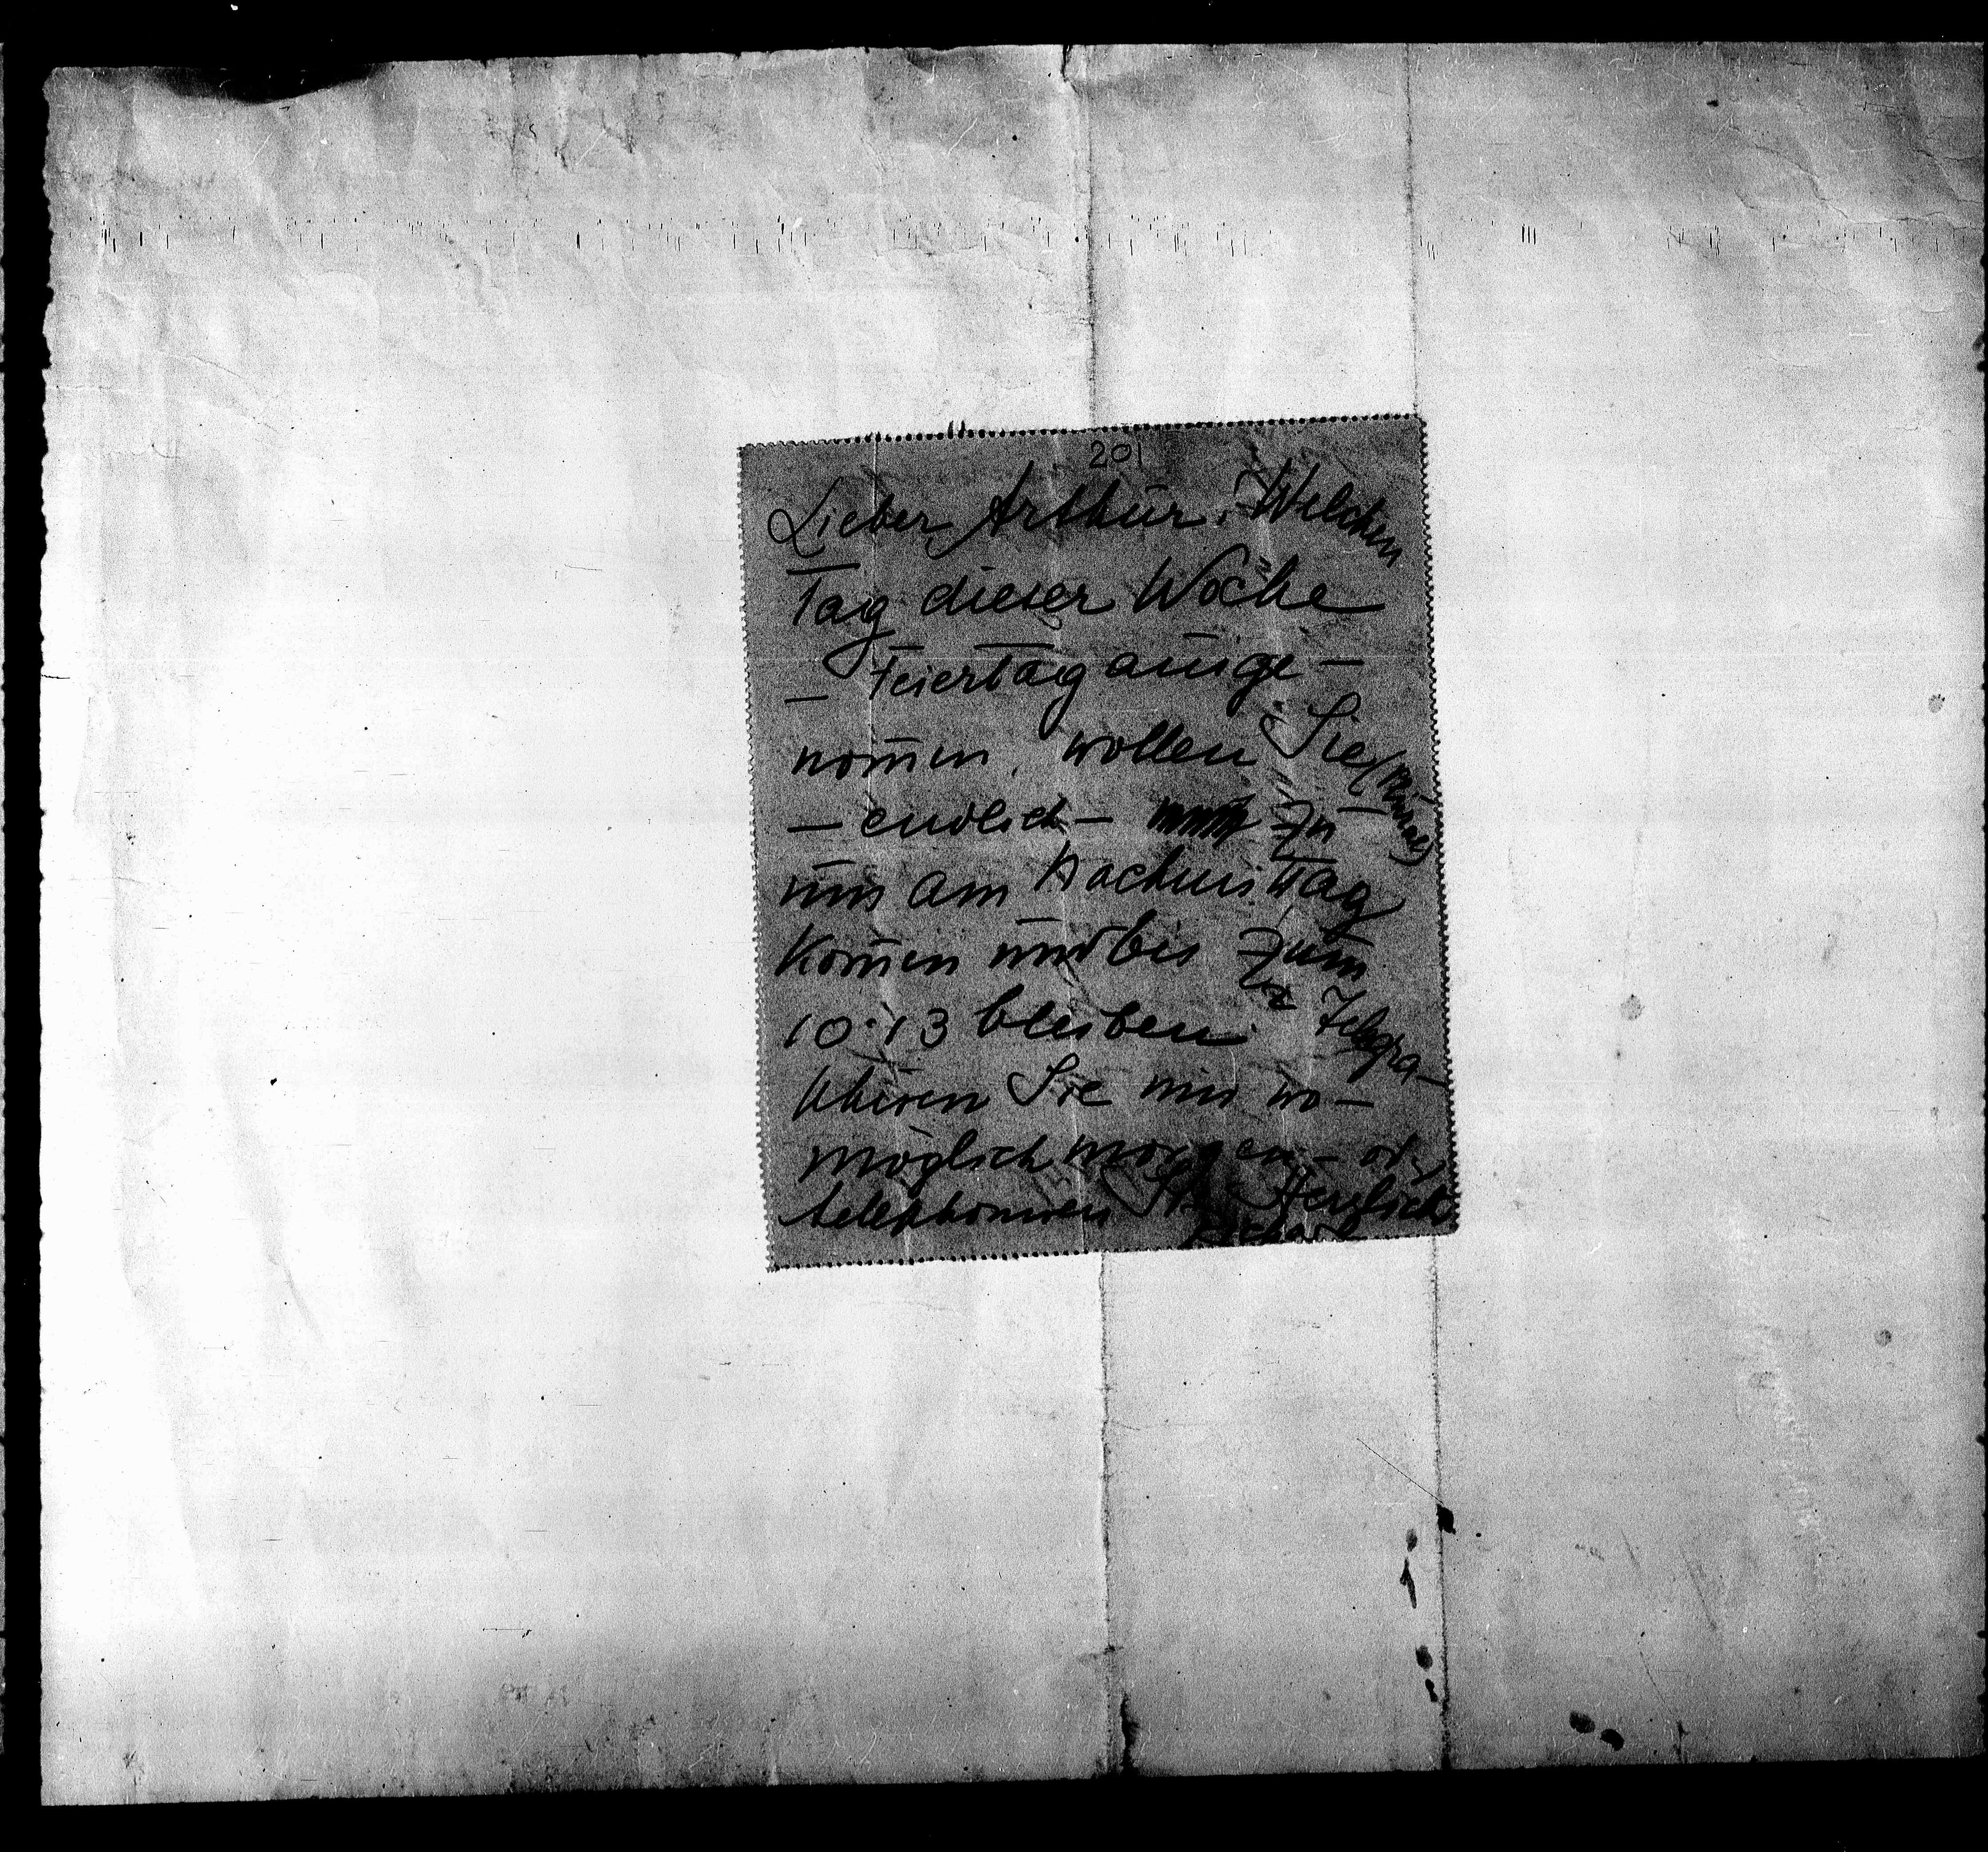 201
Lieber Arthur! Welchen
Tag dieser Woche
– Feiertag ausge–
nom̄en, wollen Sie
– endlich – zu
uns am Nachmittag
kom̄en und bis zum
10·13 bleiben. Telegra–
phiren Sie mir wo–
möglich morgen – od.
telephoniren Sie Herzlich
Richard